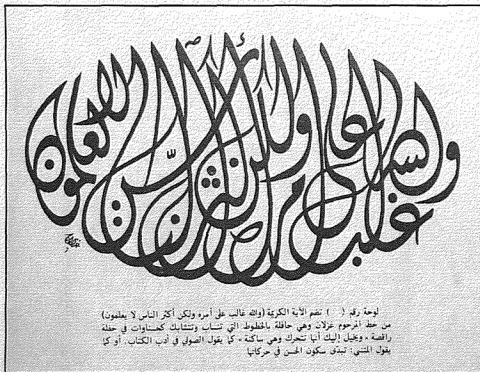 والله غالب على أمره ولكن أكثر الناس لا يعلمون
لوحة رقم ( ) تضم الآية الكريمة (والله غالب على أمره ولكن أكثر الناس لا يعلمون)
من خط المرحوم غزلان وهي حافلة بالخطوط التي تنساب وتتشابك كحسناوات في حفلة
راقصة « ويخيل إليك أنها تتحرك وهي ساكنة » كما يقول الصولي في أدب الكتاب. أو كما
يقول المتنبي: تبدي سكون الحسن في حركاتها